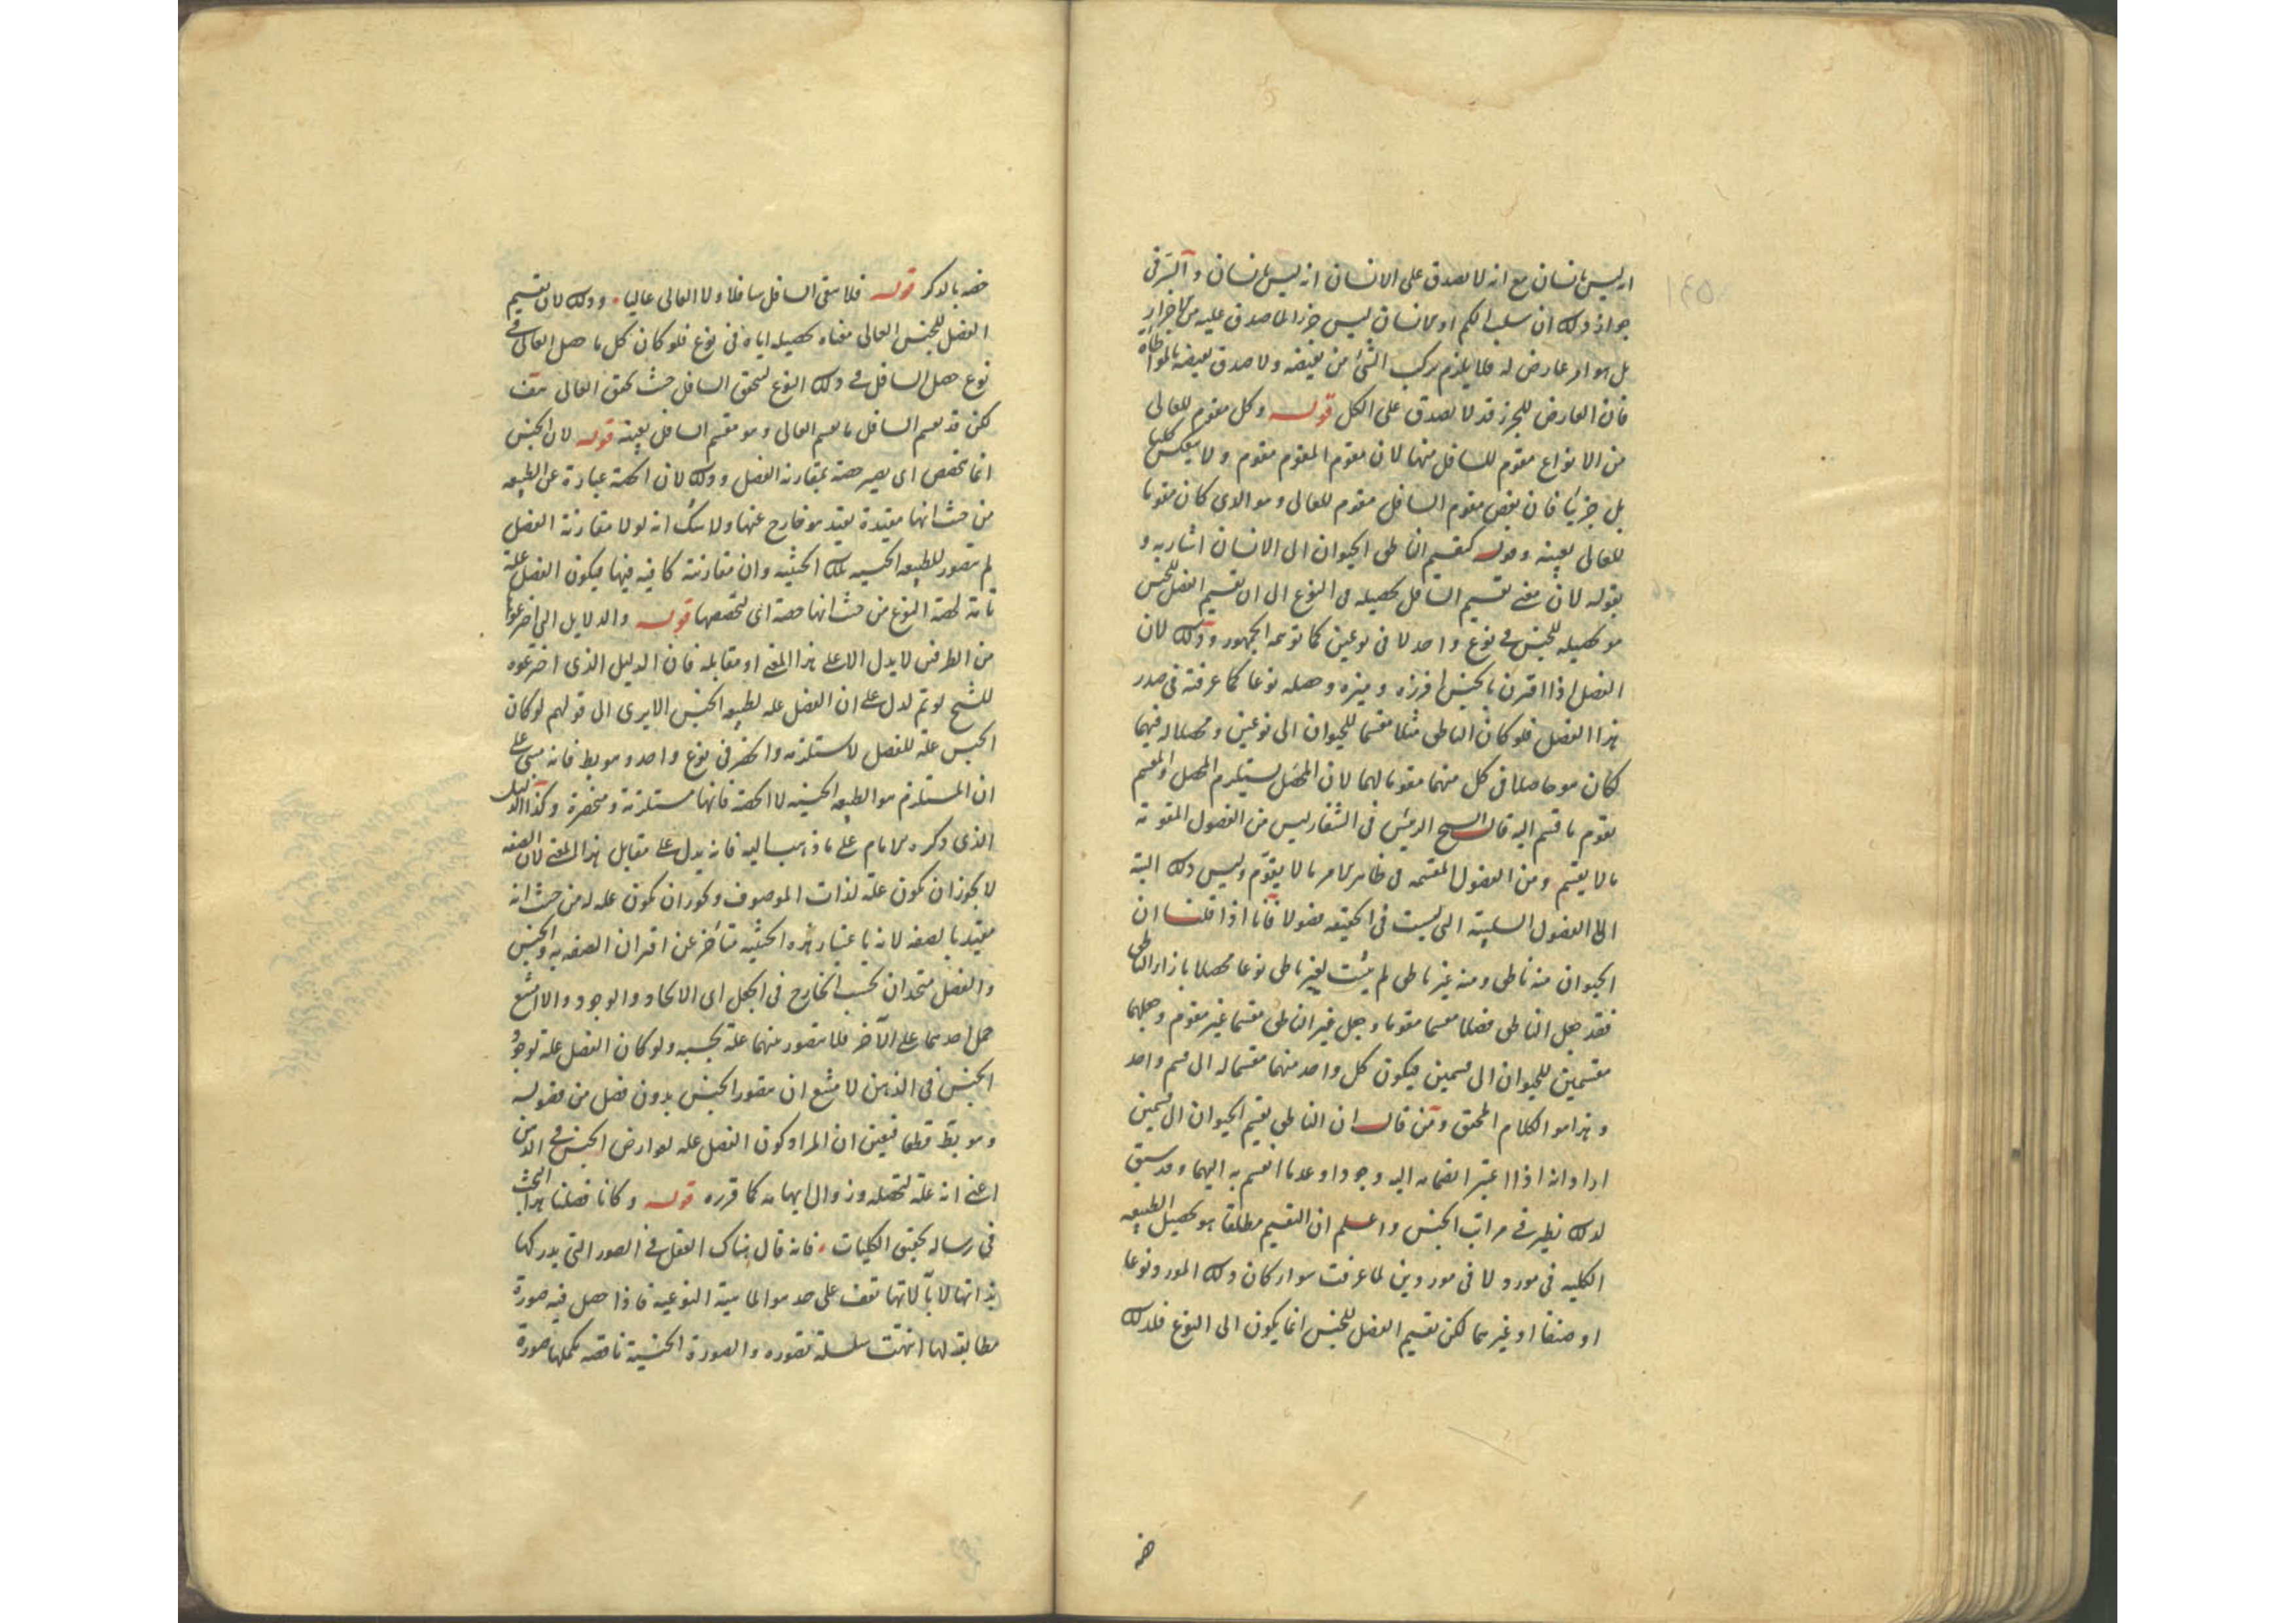 انه ليس بانسان مع انه لا يصدق على الانسان انه ليس بانسان والسر فى
جواز ذلك ان سلب الحكم او الانسان ليس جزء لما صدق عليه من الاجزاء
بل هو امر عارض له فلا يلزم تركب الشئ من نقيضه ولا صدق نقيضه بالمواطاة
فان العارض للجزء قد لا يصدق على الكل قوله وكل مقوم للعالى
من الانواع مقوم للسافل منها لان مقوم المقوم مقوم ولا ينعكس كليا
بل جزئيا فان بعض مقوم السافل مقوم للعالى وهو الذى كان مقوما
للعالى بعينه وقوله كتقسيم الناطق الحيوان الى الانسان اشار به و
بقوله لان معنى تقسيم السافل تحصيله فى النوع الى ان تقسيم الفصل للجنس
هو تحصيله للجنس فى نوع واحد لا فى نوعين كما توهمه الجمهور وذلك لان
الفصل اذا اقترن بالجنس افرزه وميزه وحصله نوعا كما عرفته فى صدر
هذا الفصل فلو كان الناطق مثلا مقسما للحيوان الى نوعين ومحصلا له فيهما
لكان هو حاصلا فى كل منهما مقوما لهما لان المحصل يستلزم المحصل والمقسم
يقوم ما قسم اليه قال الشيخ الرئيس فى الشفا ليس من الفصول المقومة
ما لا يقسم ومن الفصول المقسمة فى ظاهر الامر ما لا يقوم وليس ذلك البتة
الا الفصول السلبية التى ليست فى الحقيقة فصولا فانا اذا قلنا ان
الحيوان منه ناطق ومنه غير ناطق لم يثبت لغير ناطق نوعا محصلا بازاء الناطق
فقد جعل الناطق فصلا مقسما مقوما وجعل غير الناطق مقسما غير مقوم وجعلهما
مقسمين للحيوان الى قسمين فيكون كل واحد منهما مقسما له الى قسم واحد
وهذا هو الكلام المحقق ومن قال ان الناطق يقسم الحيوان الى قسمين
اراد انه اذا اعتبر انضمامه اليه وجودا وعدما انقسم به اليهما وقد سبق
لذلك نظير فى مراتب الجنس واعلم ان التقسيم مطلقا هو تحصيل الطبيعة
الكلية فى مورد لا فى موردين لما عرفت سواء كان ذلك المورد نوعا
او صنفا او غيرهما لكن تقسيم الفصل للجنس انما يكون الى النوع فلذلك
خصه
خصه بالذكر قوله فلا يبقى السافل سافلا ولا العالى عاليا وذلك لان تقسيم
الفصل للجنس العالى معناه تحصيله اياه فى نوع فلو كان كل ما حصل العالى فى
نوع حصل السافل فى ذلك النوع لتحقق السافل حيث تحقق العالى هف
لكن قد يقسم السافل ما يقسم العالى وهو مقسم السافل بعينه قوله لان الجنس
انما تخصص اى يصير حصة بمقارنة الفصل وذلك لان الحصة عبارة عن الطبيعة
من حيث انها مقيدة بقيد هو خارج عنها ولا شك انه لولا مقارنة الفصل
لم يتصور للطبيعة الجنسية تلك الحيثية وان مقارنته كافية فيها فيكون الفصل علة
تامة لحصة النوع من حيث انها حصة اى لتخصصها قوله والدلايل التى اخترعوها
من الطرفين لا يدل الا على هذا المعنى او مقابله فان الدليل الذى اخترعوه
للشيخ لو تم لدل على ان الفصل علة لطبيعة الجنس الا يرى الى قولهم لو كان
الجنس علة للفصل لاستلزمه وانحصر فى نوع واحد وهو بط فانه مبنى على
ان المستلزم هو الطبيعة الجنسية لا الحصة فانها مستلزمة ومنحصرة وكذا الدليل
الذى ذكره الامام على ما ذهب اليه فانه يدل على مقابل هذا المعنى لان الصفة
لا يجوز ان تكون علة لذات الموصوف ويجوز ان تكون علة له من حيث انه
مقيد بالصفة لانه باعتبار هذه الحيثية متأخر عن اقتران الصفة به والجنس
والفصل متحدان بحسب الخارج فى الجعل اى الاتحاد والوجود والا امتنع
حمل احدهما على الآخر فلا يتصور منهما علة بحسبه ولو كان الفصل علة لوجود
الجنس فى الذهن لامتنع ان يتصور الجنس بدون فصل من فصوله
وهو بط قطعا فتعين ان المراد كون الفصل علة لعوارض الجنس فى الذهن
اعنى انه علة لتحصله وزوال ابهامه كما قرره قوله وكانا فصلنا هذا البحث
فى رسالة تحقيق الكليات فانه قال هناك العقل فى الصور التى يدركها
بذاتها لا بآلاتها تقف على حد هو الماهية النوعية فاذا حصل فيه صورة
مطابقة لها انتهت سلسلة تصوره والصورة الجنسية ناقصة تكملها صورة